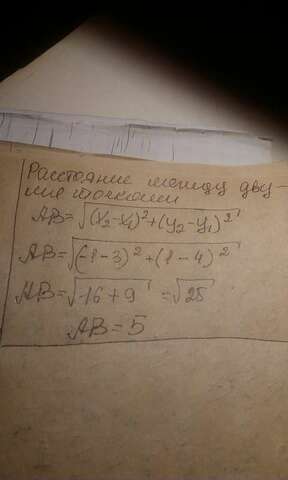 Расстояние между дву-
мя точками
AB=√(x₂-x₁)²+(y₂-y₁)²
AB=√(-1-3)²+(1-4)²
AB=√-16+9 =√25
AB=5